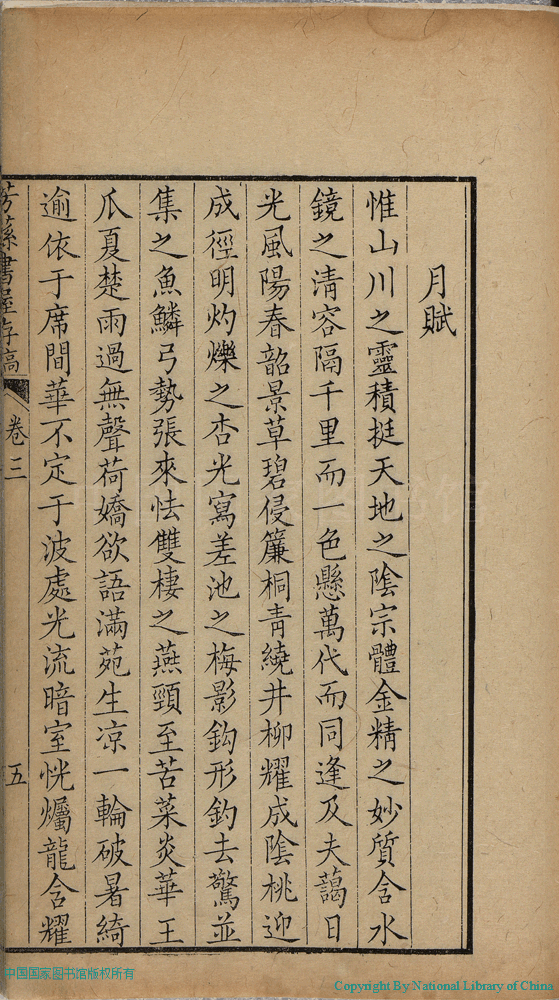 月賦
惟山川之靈積挺天地之陰宗體金精之妙質含水
鏡之清容隔千里而一色懸萬代而同逢及夫藹日
光風陽春韶景草碧侵簾桐青繞井柳耀成陰桃迎
成徑明灼爍之杏光寫差池之梅影鈎形釣去驚並
集之魚鱗弓勢張來怯雙棲之燕頸至苦菜炎華王
瓜夏楚雨過無聲荷嬌欲語滿苑生凉一輪破暑綺
逾依于席間華不定于波處光流暗室恍爥龍含耀
芳蓀書屋存稿 卷三 五
中国国家图书馆版权所有
Copyright By National Library of China